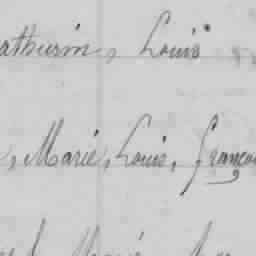 athurin, Louis
, Marie, Louis, Franço